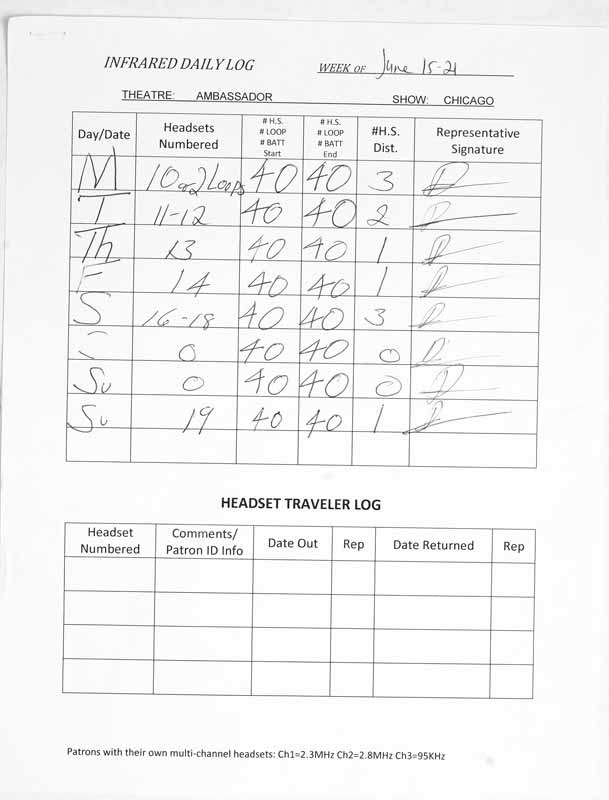 INFRARED DAILY LOG WEEK OF June 15-21
THEATRE: AMBASSADOR SHOW: CHICAGO
Day/Date Headsets Numbered # H.S. # LOOP # BATT Start # H.S. # LOOP # BATT End #H.S. Dist. Representative Signature
M 10 2 Loops 40 40 3
T 11-12 40 40 2
Th 13 40 40 1
F 14 40 40 1
S 16-18 40 40 3
S 0 40 40 0
Su 0 40 40 0
Su 19 40 40 1
HEADSET TRAVELER LOG
Headset Numbered Comments/ Patron ID Info Date Out Rep Date Returned Rep
Patrons with their own multi-channel headsets: Ch1=2.3MHz Ch2=2.8MHz Ch3=95KHz